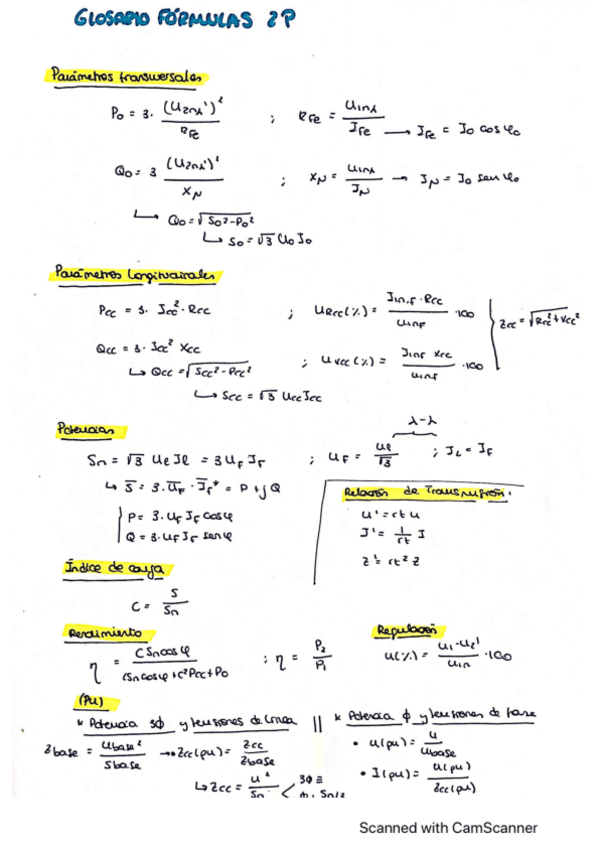 GLOSARIO FÓRMULAS 2P
Parámetros transversales
P₀ = 3· (U₂ₙλ')² / R_Fe ; R_Fe = U₁ₙλ / I_Fe → I_Fe = I₀ cos φ₀
Q₀ = 3 (U₂ₙλ')² / X_N ; X_N = U₁ₙλ / I_N → I_N = I₀ sen φ₀
↳ Q₀ = √S₀² - P₀²
↳ S₀ = √3 U₀ I₀
Parámetros longitudinales
Pcc = 3· Icc² · Rcc ; URcc(%) = I₁ₙF · Rcc / U₁ₙF ·100
Zcc = √Rcc² + Xcc²
Qcc = 3· Icc² Xcc ; UXcc(%) = I₁ₙF Xcc / U₁ₙF ·100
↳ Qcc = √Scc² - Pcc²
↳ Scc = √3 Ucc Icc
λ-λ
Potencias
Sn = √3 Uℓ Iℓ = 3 U_F I_F ; U_F = Uℓ / √3 ; I_L = I_F
↳ S̄ = 3· Ū_F · Ī_F* = P + j Q
P = 3· U_F I_F cos φ
Q = 3· U_F I_F sen φ
Relación de Transmisión:
U' = rt U
I' = 1/rt I
Z' = rt² Z
Índice de carga
C = S / Sn
Rendimiento
η = C Sn cos φ / CSn cos φ + C² Pcc + P₀ ; η = P₂ / P₁
Regulación
U(%) = U₁ - U₂' / U₁ₙ ·100
(PU)
* Potencia 3ϕ y tensiones de línea || * Potencia ϕ y tensiones de fase
Zbase = Ubase² / Sbase → Zcc(pu) = Zcc / Zbase
• U(pu) = U / Ubase
↳ Zcc = U² / Sn < 3ϕ
• I(pu) = U(pu) / Zcc(pu)
Scanned with CamScanner